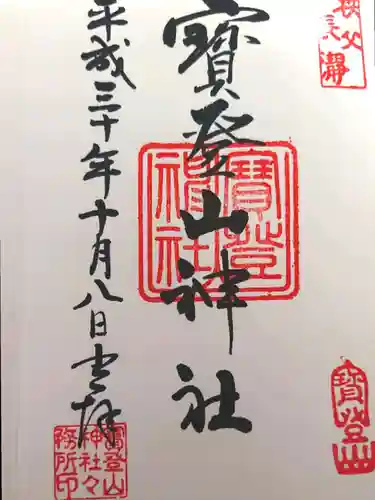 秩父
長瀞
寳登山神社
寳登
神社
平成三十年十月八日参拝
寳登山
寳登山
神社々
務所印